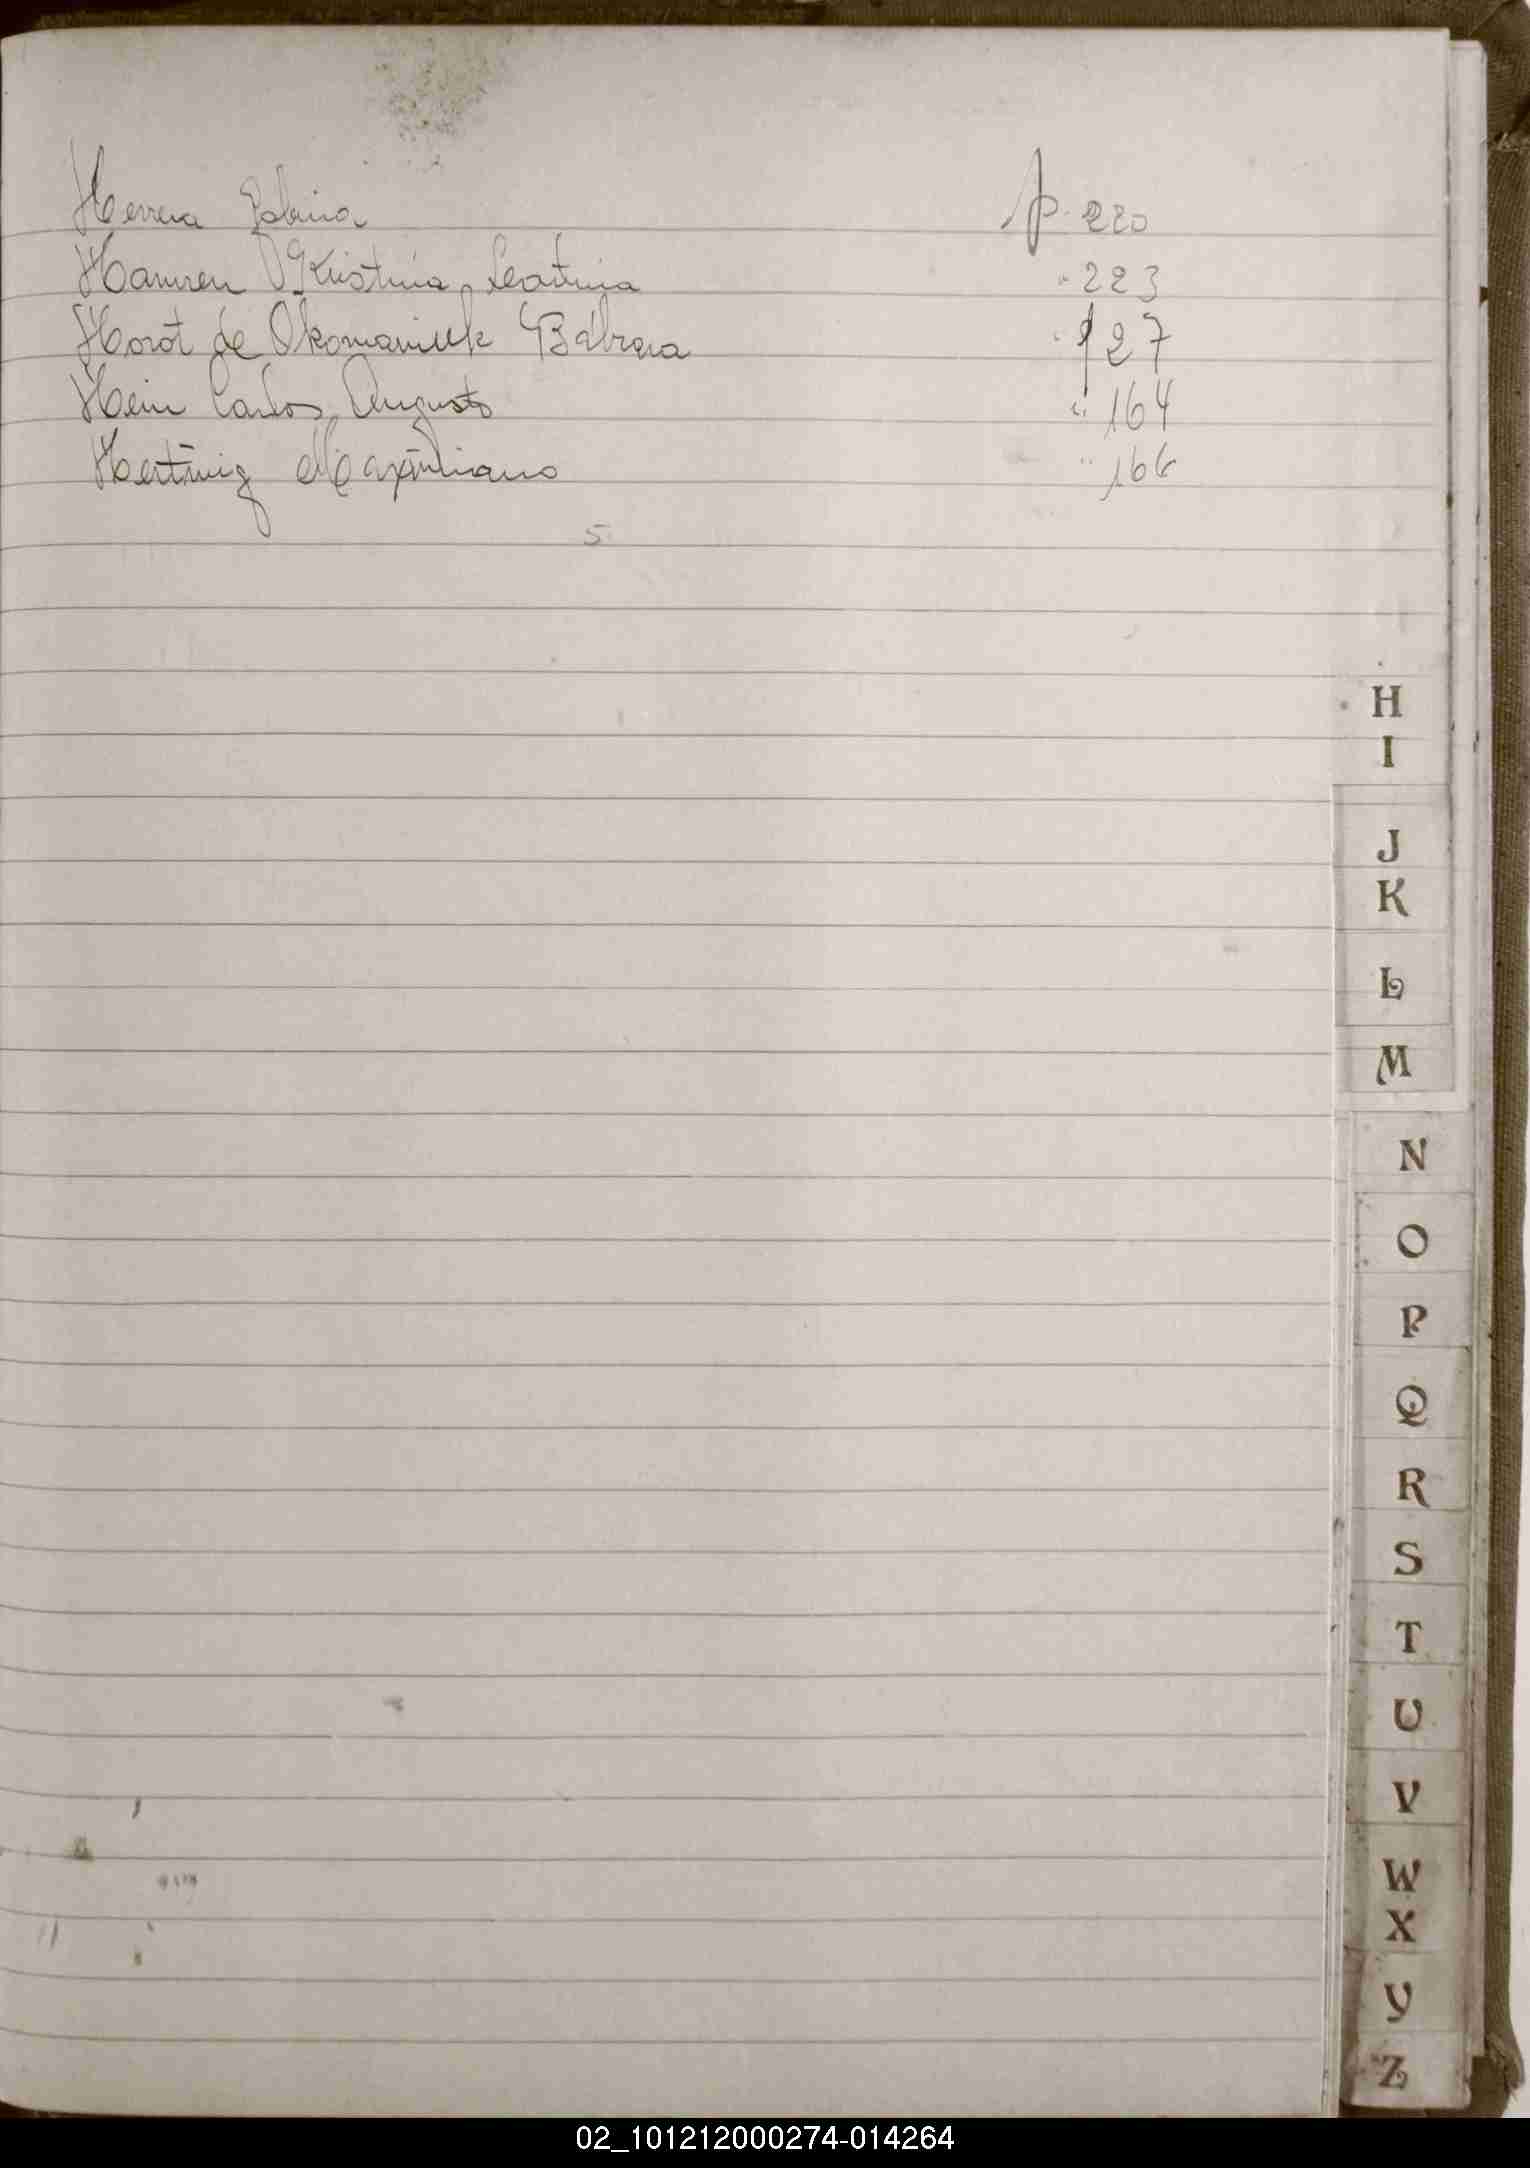 Herrera Sabina p. 220
Hamren Kristina Leontina " 223
Horot de Okomaniuk Bábrara " 127
Hein Carlos Augusto " 164
Hertwig Maximiliano " 166
5
H
I
J
K
L
M
N
O
P
Q
R
S
T
U
V
W
X
Y
Z
02_101212000274-014264